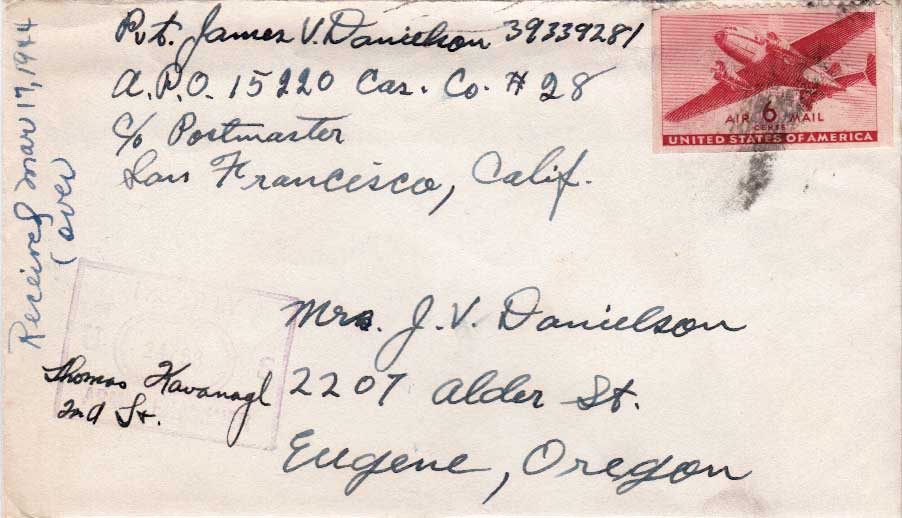 Pvt. James V. Danielson 39339281
A.P.O. 15220 Cas. Co. # 28
c/o Postmaster
San Francisco, Calif.
AIR 6 MAIL
CENTS
UNITED STATES OF AMERICA
Received Mar 17, 1944
(over
Mrs. J. V. Danielson
2207 Alder St.
Eugene, Oregon
Thomas Kavanagh